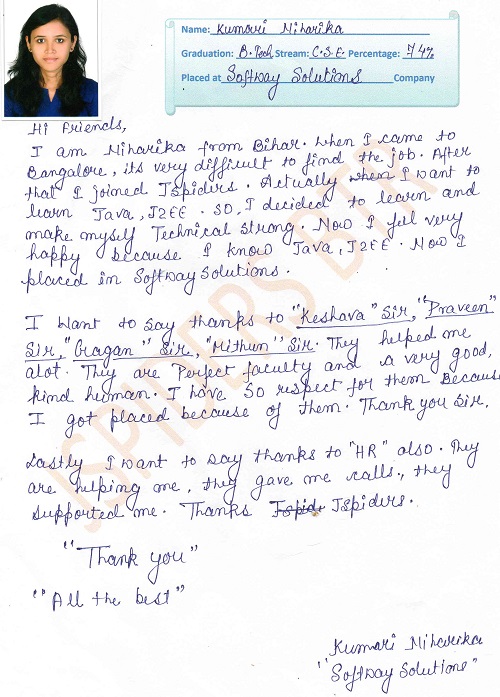 Name: Kumari Niharika
Graduation: B.Tech Stream: C.S.E Percentage: 74%
Placed at Softway Solutions Company
Hi Friends,
I am Niharika from Bihar. When I came to
Bangalore, its very difficult to find the job. After
that I joined Jspiders. Actually when I want to
learn Java, J2EE. SO, I decided to learn and
make myself Technical strong. Now I fell very
happy because I know Java, J2EE. Now I
placed in Softway Solutions.
I want to say thanks to "Keshava" Sir, "Praveen"
Sir, "Gagan" Sir, "Mithun" Sir. They helped me
alot. They are Perfect faculty and a very good,
kind human. I have so respect for them Because
I got placed because of them. Thank you Sir.
Lastly I want to say thanks to "HR" also. They
are helping me, they gave me calls, they
supported me. Thanks Jspiders.
"Thank you"
"All the best"
Kumari Niharika
"Softway Solutions"
JSPIDERS BTR